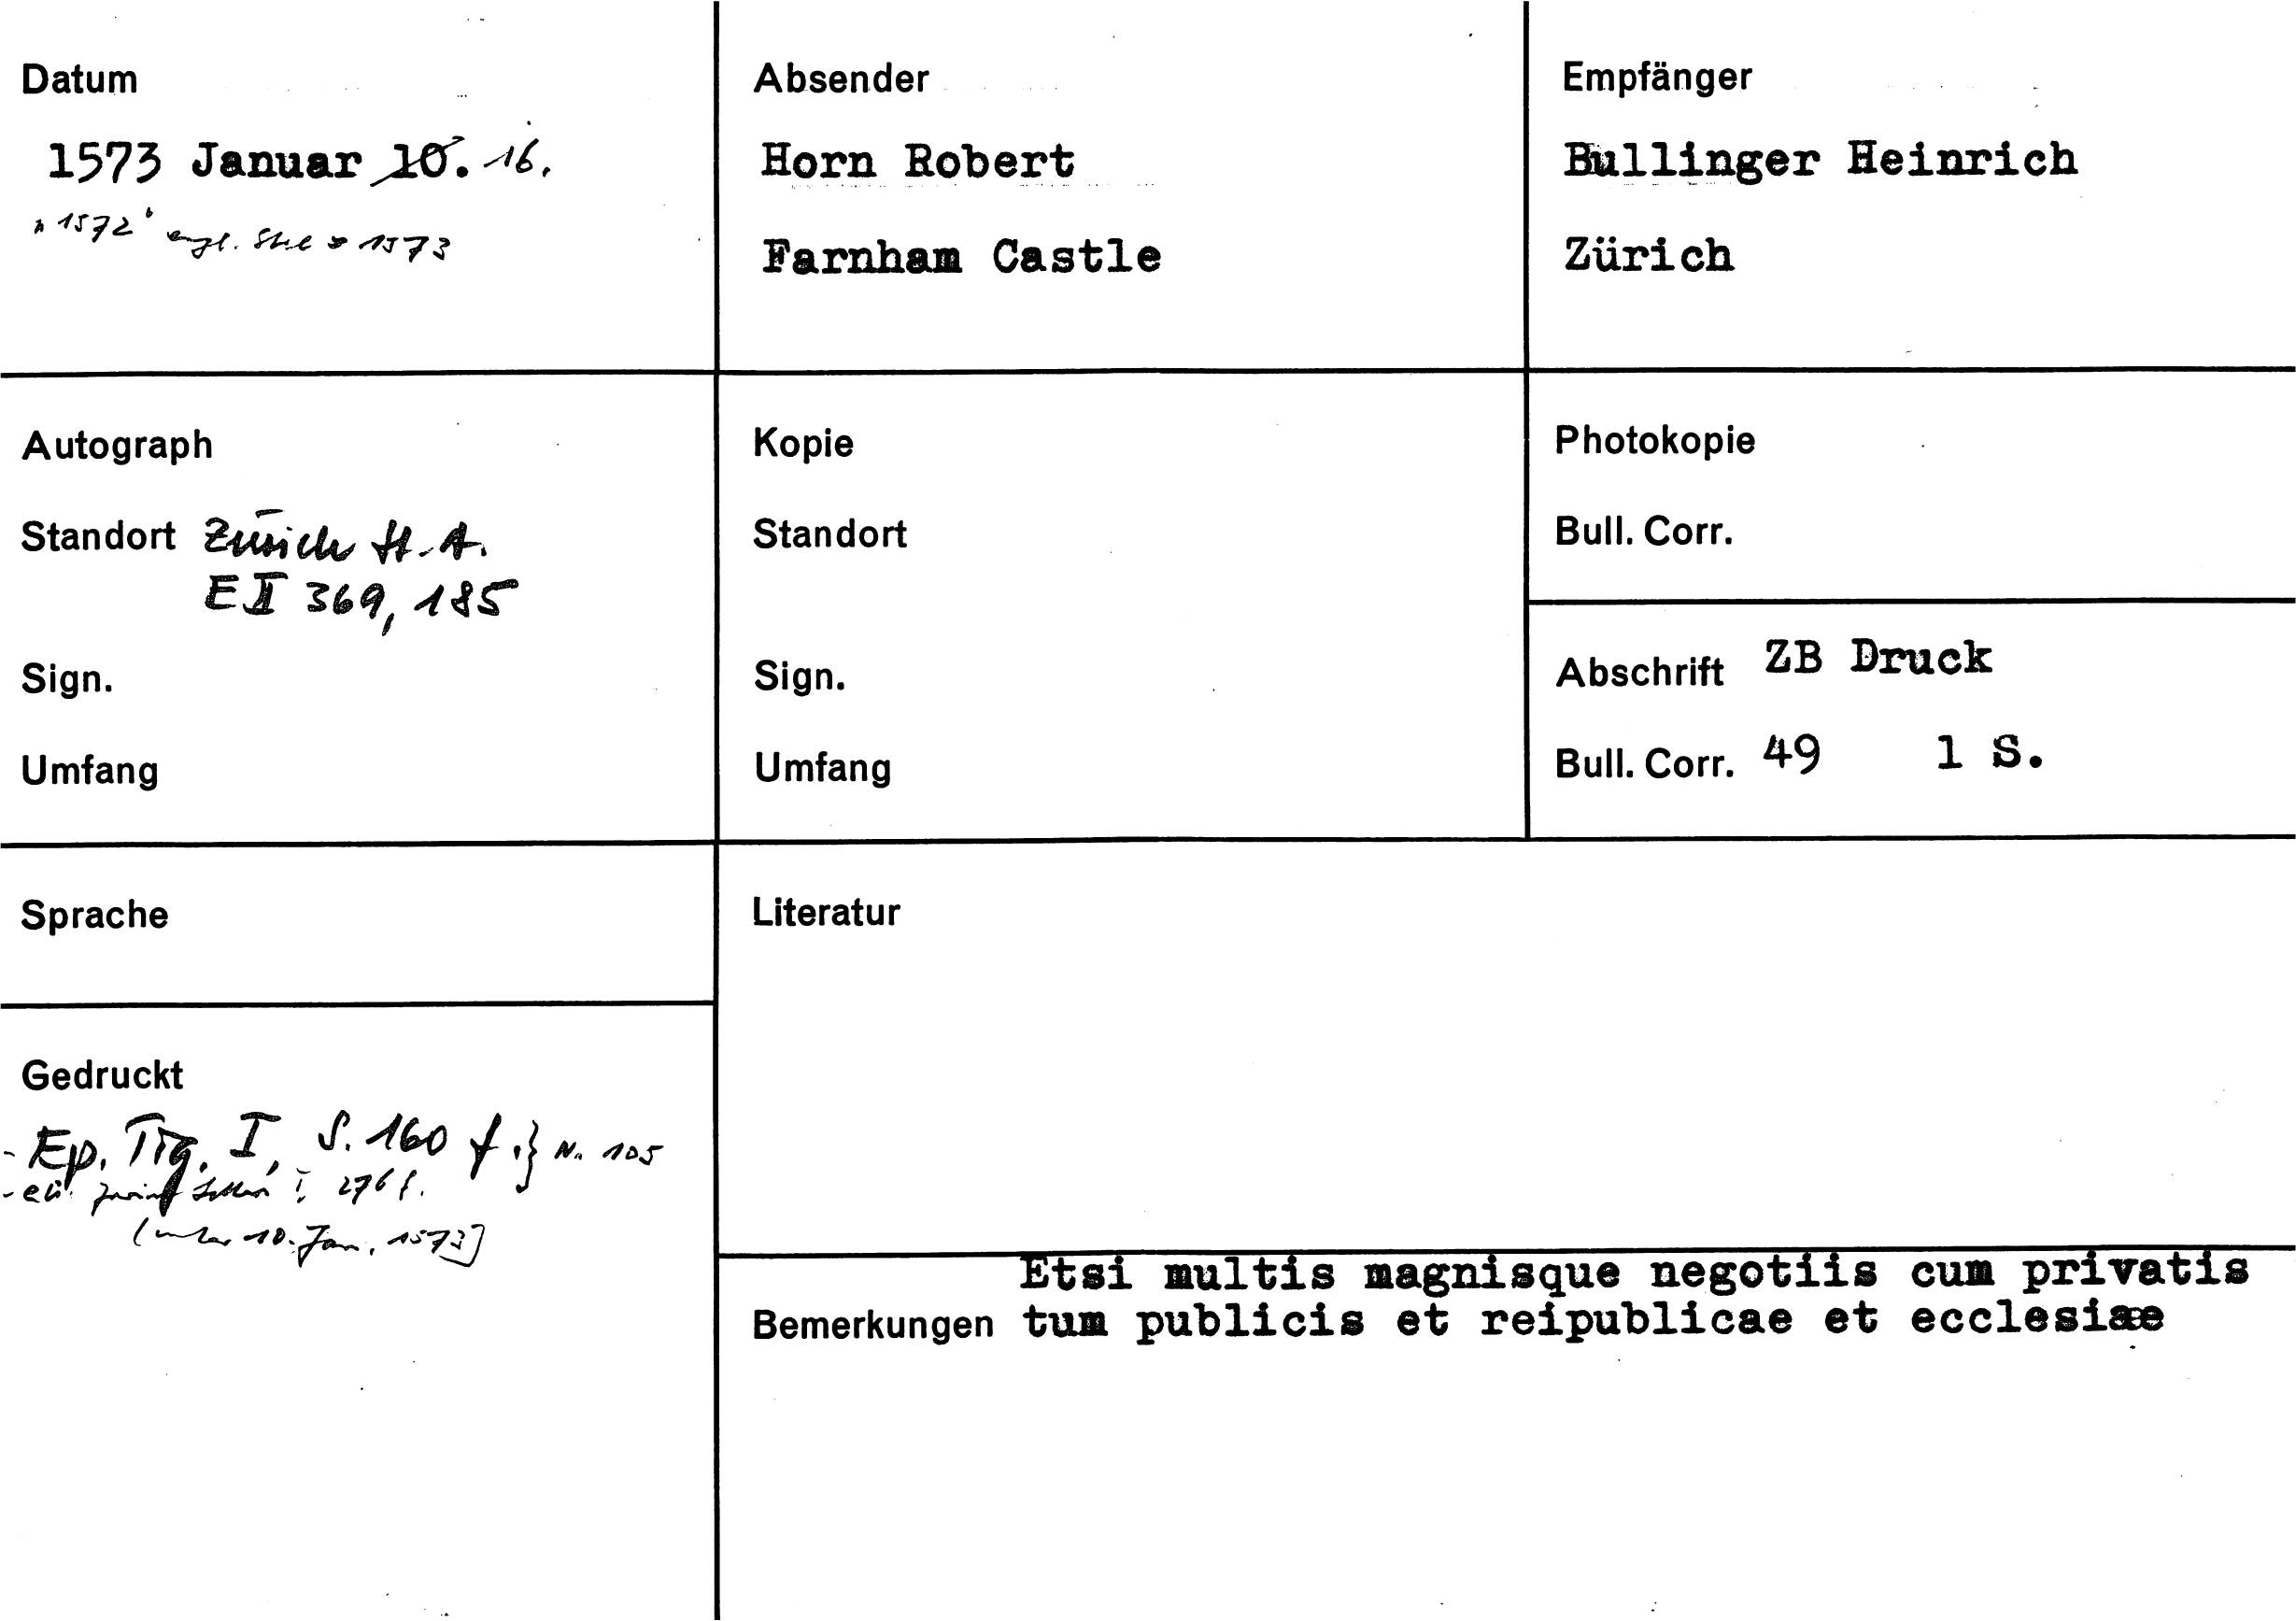 Datum
1573 Januar 10. 16.
"1572" engl. Stil = 1573
Absender
Horn Robert
Farnham Castle
Empfänger
Bullinger Heinrich
Zürich
Autograph
Standort Zürich St. A.
E II 369, 185
Sign.
Umfang
Kopie
Standort
Sign.
Umfang
Photokopie
Bull. Corr.
Abschrift ZB Druck
Bull. Corr. 49 1 S.
Sprache
Gedruckt
- Ep. Tig. I, S. 160 f. } N. 105
Letters I, 276 f.
(unter 10. Jan. 1573)
Literatur
Etsi multis magnisque negotiis cum privatis
Bemerkungen tum publicis et reipublicae et ecclesiae